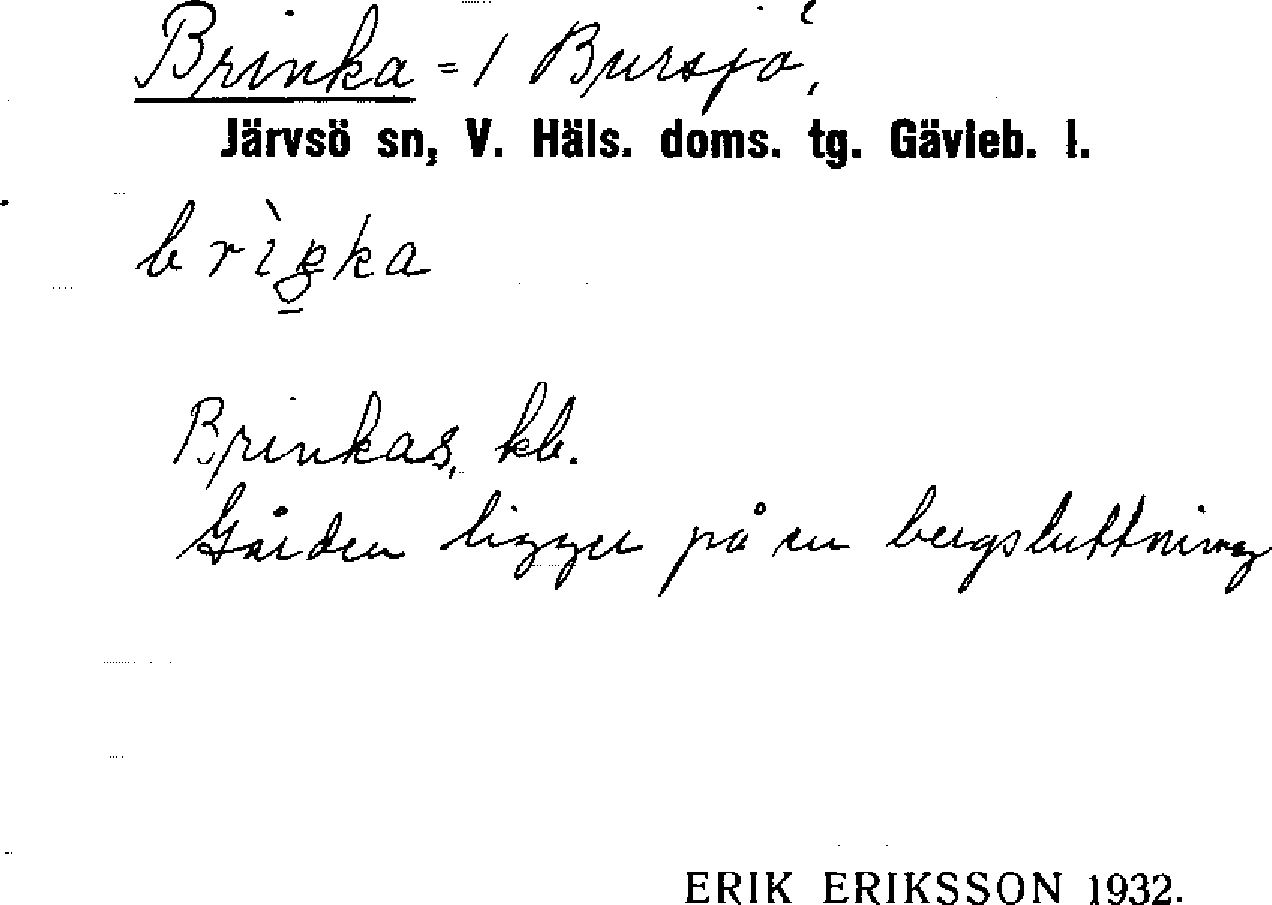 Brinka = 1 Bursjö,
Järvsö sn, V. Häls. doms. tg. Gävleb. l.
brìŋka
Brinkas, kb.
Gården ligger på en bergsluttning
ERIK ERIKSSON 1932.